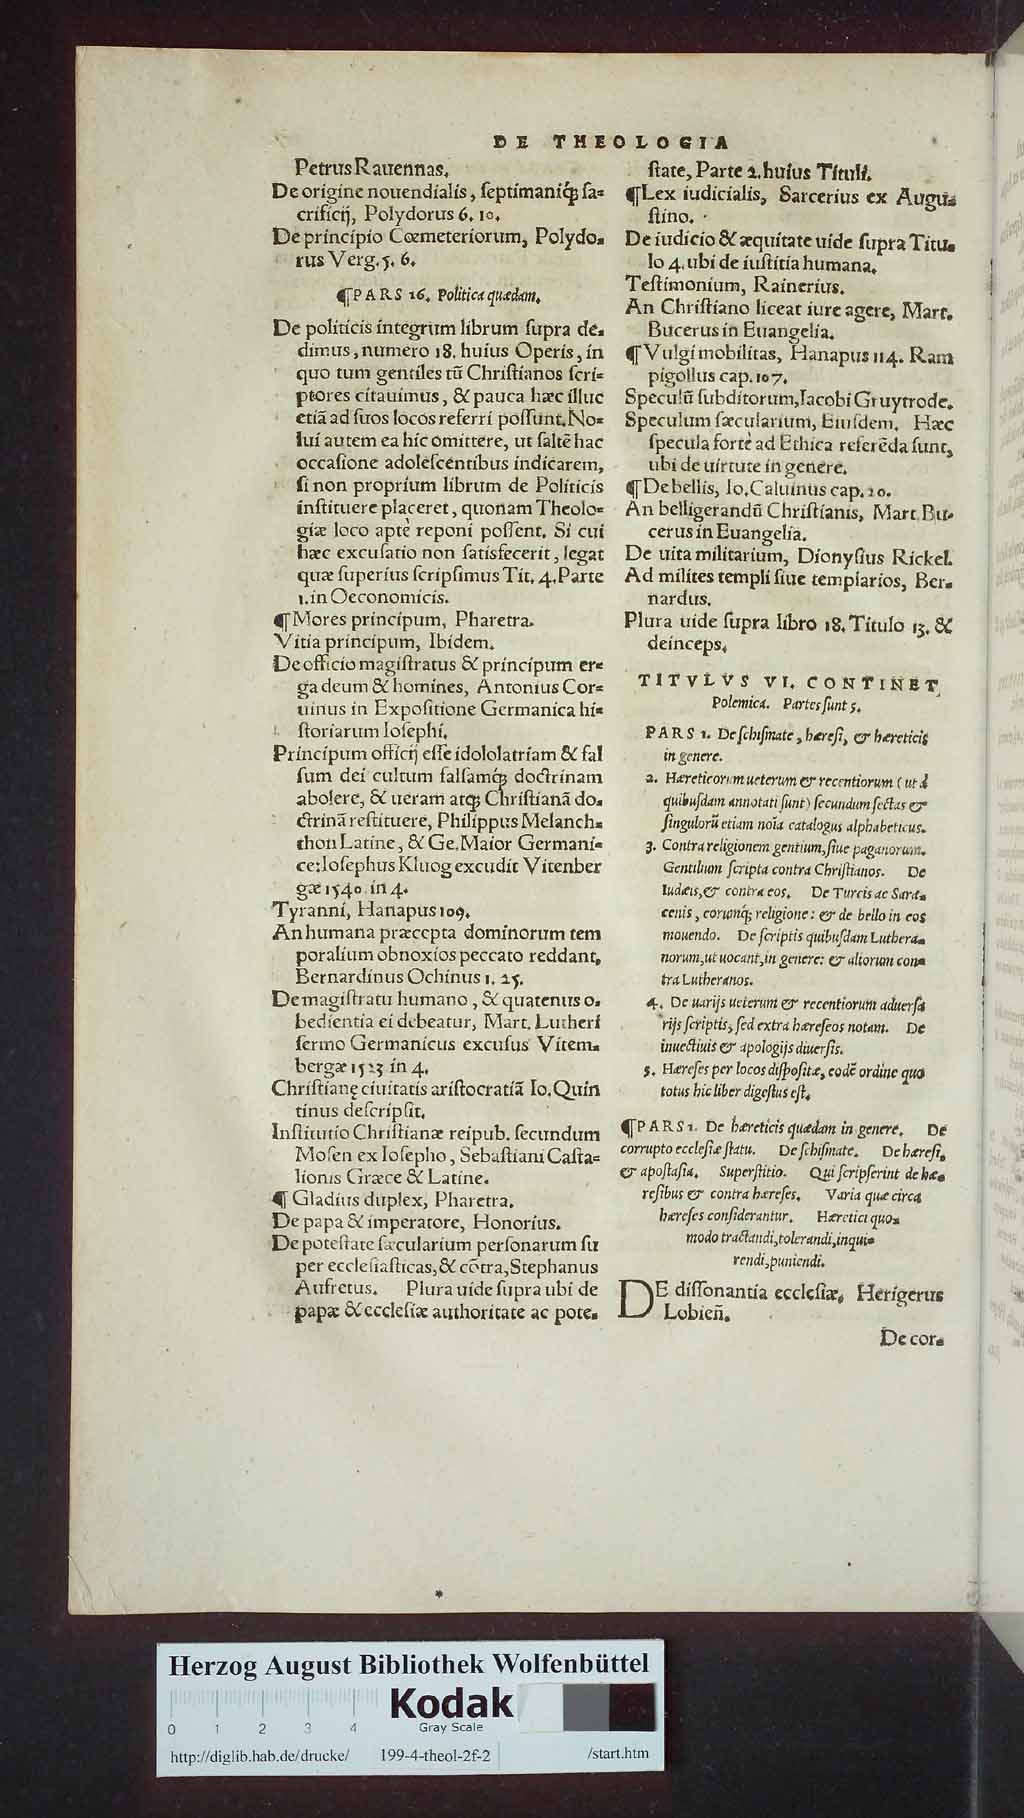 DE THEOLOGIA
Petrus Rauennas.
De origine nouendialis, ſeptimaniq́; ſa=
crificij, Polydorus 6. 10.
De principio Cœmeteriorum, Polydo=
rus Verg. 5. 6.
¶PARS 16. Politica quædam.
De politicis integrum librum ſupra de=
dimus, numero 18. huius Operis, in
quo tum gentiles tū Chriſtianos ſcri=
ptores citauimus, & pauca hæc illuc
etiā ad ſuos locos referri poſſunt. No=
lui autem ea hic omittere, ut ſaltē hac
occaſione adoleſcentibus indicarem,
ſi non proprium librum de Politicis
inſtituere placeret, quonam Theolo=
giæ loco aptè reponi poſſent. Si cui
hæc excuſatio non ſatisfecerit, legat
quæ ſuperius ſcripſimus Tit. 4. Parte
1. in Oeconomicis.
¶Mores principum, Pharetra.
Vitia principum, Ibidem.
De officio magiſtratus & principum er=
ga deum & homines, Antonius Cor=
uinus in Expoſitione Germanica hi=
ſtoriarum Ioſephi.
Principum officij eſſe idololatriam & fal
ſum dei cultum falſamq́; doctrinam
abolere, & ueram atq; Chriſtianā do=
ctrinā reſtituere, Philippus Melanch=
thon Latine, & Ge. Maior Germani=
ce: Ioſephus Kluog excudit Vitenber
gæ 1540. in 4.
Tyranni, Hanapus 109.
An humana præcepta dominorum tem
poralium obnoxios peccato reddant,
Bernardinus Ochinus 1. 25.
De magiſtratu humano, & quatenus o=
bedientia ei debeatur, Mart. Lutheri
ſermo Germanicus excuſus Vitem=
bergæ 1523 in 4.
Chriſtianę ciuitatis ariſtocratiā Io. Quin
tinus deſcripſit.
Inſtitutio Chriſtianæ reipub. ſecundum
Moſen ex Ioſepho, Sebaſtiani Caſta=
lionis Græce & Latine.
¶ Gladius duplex, Pharetra.
De papa & imperatore, Honorius.
De poteſtate ſæcularium perſonarum ſu
per eccleſiaſticas, & cōtra, Stephanus
Aufretus. Plura uide ſupra ubi de
papæ & eccleſiæ authoritate ac pote=
ſtate, Parte 2. huius Tituli.
¶Lex iudicialis, Sarcerius ex Augu=
ſtino.
De iudicio & æquitate uide ſupra Titu=
lo 4. ubi de iuſtitia humana.
Teſtimonium, Rainerius.
An Chriſtiano liceat iure agere, Mart.
Bucerus in Euangelia.
¶ Vulgi mobilitas, Hanapus 114. Ram
pigollus cap. 107.
Speculū ſubditorum, Iacobi Gruytrode.
Speculum ſæcularium, Eiuſdem. Hæc
ſpecula fortè ad Ethica referēda ſunt,
ubi de uirtute in genere.
¶De bellis, Io. Caluinus cap. 20.
An belligerandū Chriſtianis, Mart. Bu=
cerus in Euangelia.
De uita militarium, Dionyſius Rickel.
Ad milites templi ſiue templarios, Ber=
nardus.
Plura uide ſupra libro 18. Titulo 13. &
deinceps.
TITVLVS VI. CONTINET
Polemica. Partes ſunt 5.
PARS 1. De ſchiſmate, hæreſi, & hæreticis
in genere.
2. Hæreticorum ueterum & recentiorum (ut à
quibuſdam annotati ſunt) ſecundum ſectas &
ſingulorū etiam noīa catalogus alphabeticus.
3. Contra religionem gentium, ſiue paganorum.
Gentilium ſcripta contra Chriſtianos. De
Iudæis, & contra eos. De Turcis ac Sara=
cenis, eorumq́; religione: & de bello in eos
mouendo. De ſcriptis quibuſdam Luthera=
norum, ut uocant, in genere: & aliorum con=
tra Lutheranos.
4. De uarijs ueterum & recentiorum aduerſa
rijs ſcriptis, ſed extra hæreſeos notam. De
inuectiuis & apologijs diuerſis.
5. Hæreſes per locos diſpoſitæ, eodē ordine quo
totus hic liber digeſtus eſt.
¶PARS 1. De hæreticis quædam in genere. De
corrupto eccleſiæ ſtatu. De ſchiſmate. De hæreſi,
& apoſtaſia. Superſtitio. Qui ſcripſerint de hæ=
reſibus & contra hæreſes. Varia quæ circa
hæreſes conſiderantur. Hæretici quo=
modo tractandi, tolerandi, inqui=
rendi, puniendi.
DE diſſonantia eccleſiæ, Herigerus
Lobieñ.
De cor=
Herzog August Bibliothek Wolfenbüttel
Kodak
Gray Scale
0 1 2 3 4
http://diglib.hab.de/drucke/ 199-4-theol-2f-2 /start.htm